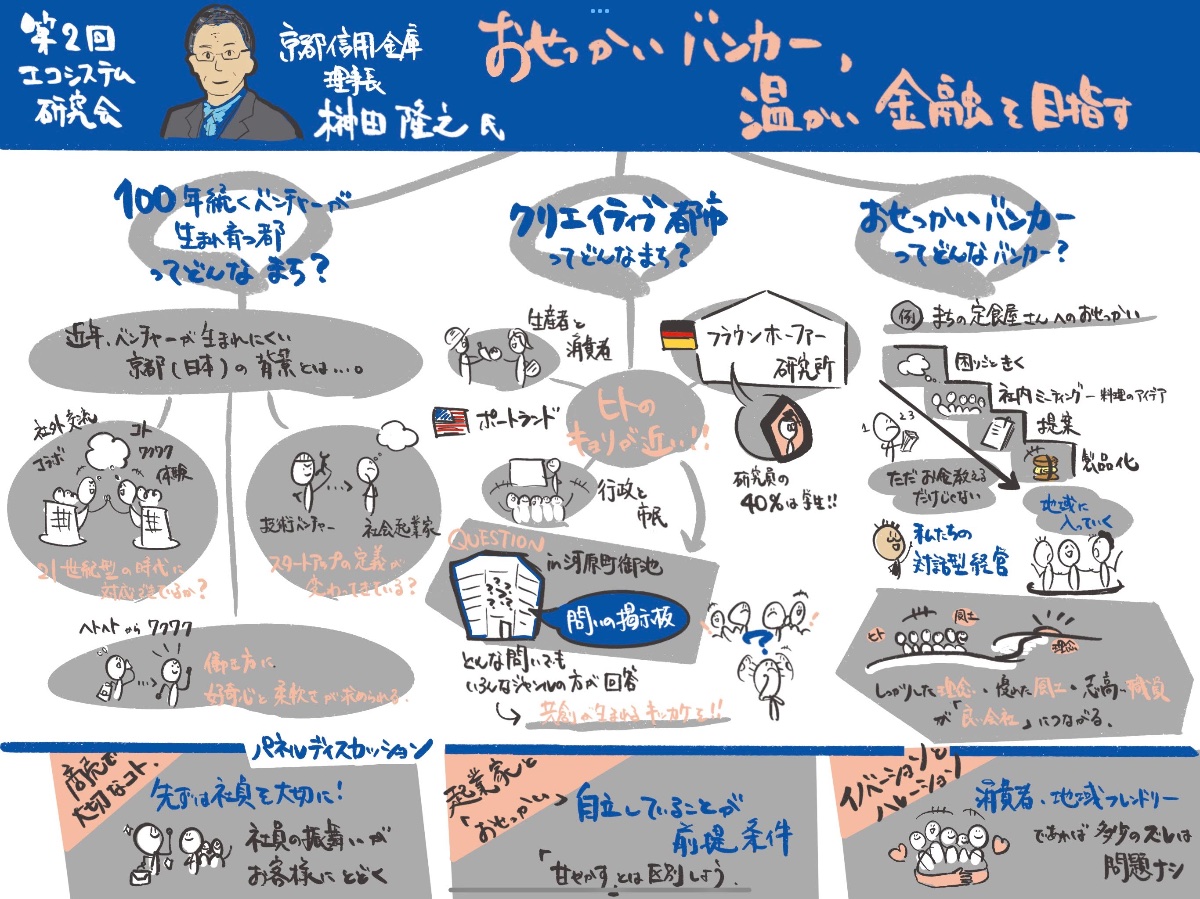 第2回
エコシステム
研究会
京都信用金庫
理事長
榊田隆之氏
おせっかいバンカー,
温かい金融を目指す
100年続くベンチャーが
生まれ育つ都
ってどんなまち?
近年、ベンチャーが生まれにくい
京都(日本)の背景とは…。
社外交流
コラボ
コト
ワクワク
体験
21世紀型の時代に
対応できているか?
技術ベンチャー
社会起業家
スタートアップの定義が
変わってきている?
ヘトヘトからワクワク
働き方に
好奇心と柔軟さが求められる.
クリエイティブ都市
ってどんなまち?
生産者と
消費者
ポートランド
行政と
市民
ヒトの
キョリが近い!!
フラウンホーファー
研究所
研究員の
40%は学生!!
QUESTION
in 河原町御池
???
問いの掲示板
どんな問いでも
いろんなジャンルの方が回答
共創が生まれるキッカケを!!
?
おせっかいバンカー
ってどんなバンカー?
例
まちの定食屋さんへのおせっかい
困りごときく
社内ミーティング-料理のアイデア
提案
製品化
1 2 3
ただお金教える
だけじゃない
地域に
入っていく
私たちの
対話型経営
ヒト
風土
理念
しっかりした理念・優れた風土・志高い職員
が「良い会社」につながる.
パネルディスカッション
商売で
大切なコト.
先ずは社員を大切に!
社員の振舞いが
お客様にとどく
起業家と
「おせっかい」
自立していることが
前提条件
「甘やかす」とは区別しよう.
イノベーションと
ハレーション
消費者・地域フレンドリー
であれば多少のズレは
問題ナシ